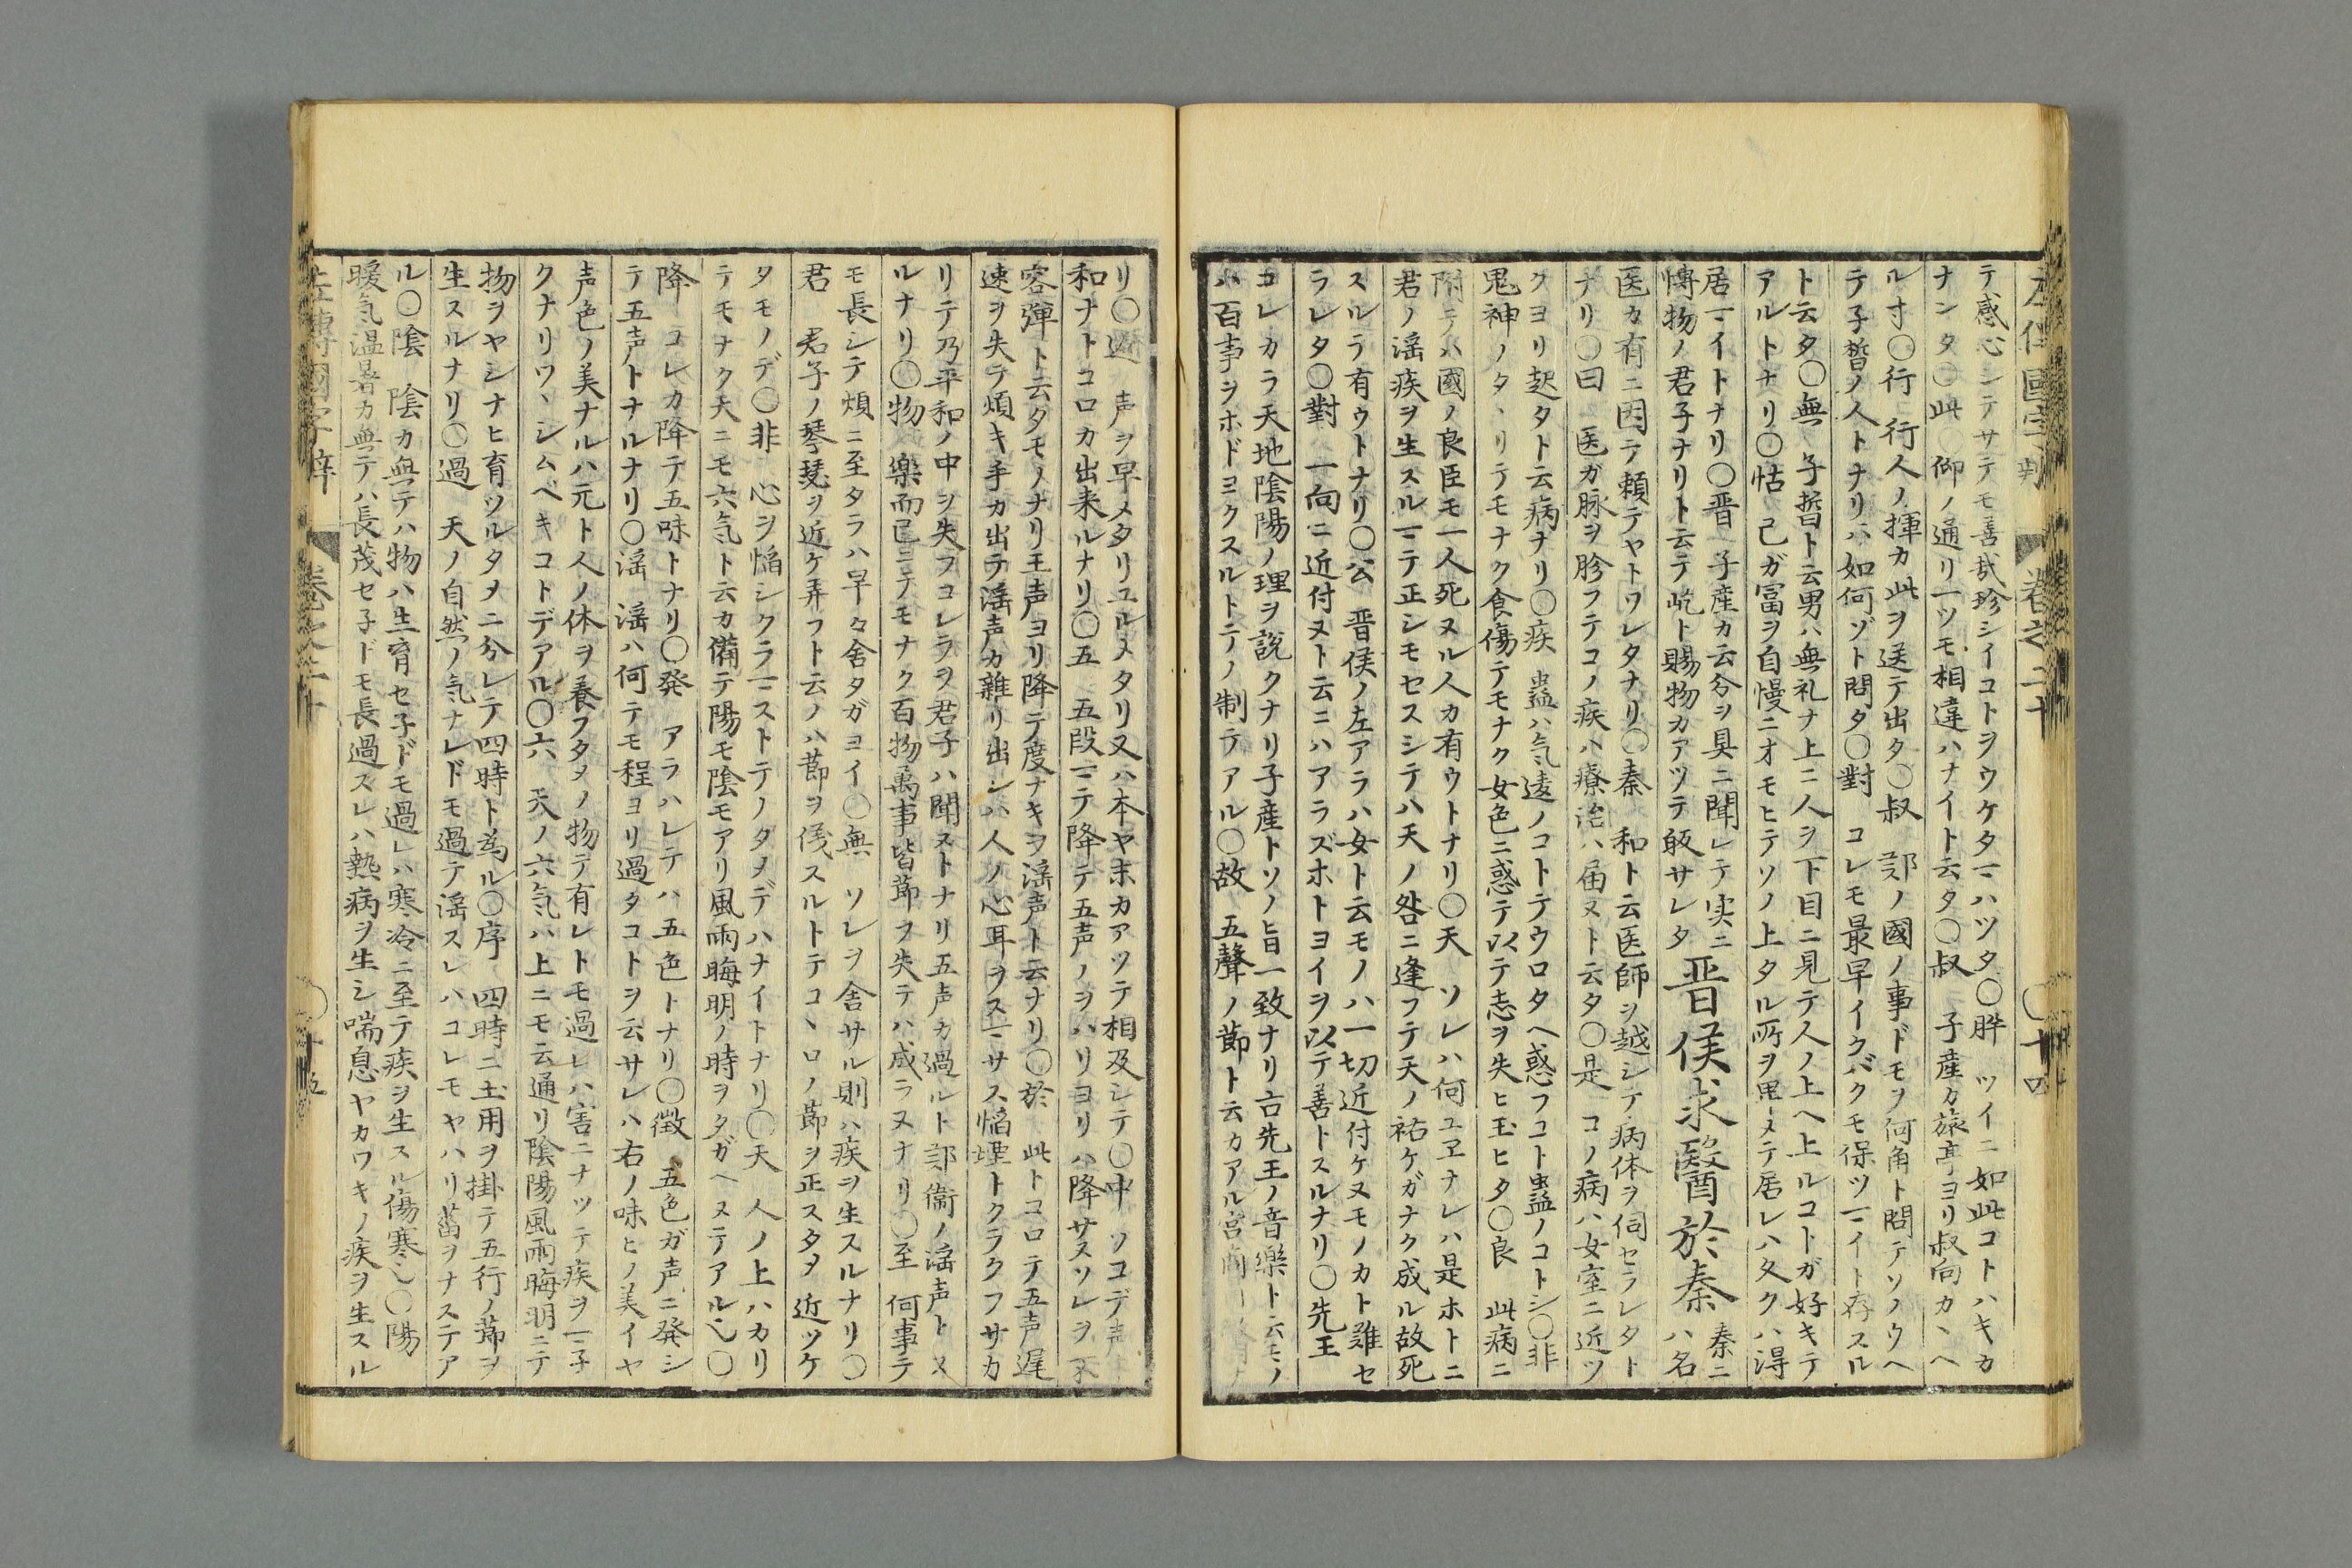 卷之二十
○十四
テ感心シテサテモ善哉珍シイコトヲウケタ𪜈ハツタ○肸 ツイニ如此コトハキカ
ナンタ○此 仰ノ通リ一ツモ相違ハナイト云タ○叔 子産カ旅亭ヨリ叔向カヽヘ
ル寸○行 行人ノ揮カ此ヲ送テ出タ○叔 鄭ノ國ノ事ドモヲ何角ト問テソノウヘ
テ子皙ノ人トナリハ如何ゾト問タ○對 コレモ最早イクバクモ保ツヿイト存スル
ト云タ○無 子晳ト云男ハ無礼ナ上ニ人ヲ下目ニ見テ人ノ上ヘ上ルコトガ好キテ
アルトナリ○怙 己ガ富ヲ自慢ニオモヒテソノ上タル所ヲ卑メテ居レハ久クハ得
居ヿイトナリ○晋 子産カ云分ヲ具ニ聞レテ実ニ
博物ノ君子ナリト云テ屹ト賜物カアツテ皈サレタ
晋侯求醫於秦
秦ニ
ハ名
医カ有ニ因テ頼テヤトワレタナリ○秦 和ト云医師ヲ越シテ病体ヲ伺セラレタト
ナリ○曰 医ガ脉ヲ胗フテコノ疾ハ療治ハ届ヌト云タ○是 コノ病ハ女室ニ近ツ
クヨリ起タト云病ナリ○疾 蠱ハ気逵ノコトテウロタヘ惑フコト蠱ノコトシ○非
鬼神ノタヽリテモナク食傷テモナク女色ニ惑テ以テ志ヲ失ヒ玉ヒタ○良 此病ニ
附テハ國ノ良臣モ一人死ヌル人カ有ウトナリ○天 ソレハ何ユヱナレハ是ホトニ
君ノ淫疾ヲ生スルヿテ正シモセスシテハ天ノ咎ニ逢フテ天ノ祐ケガナク成ル故死
スルラ有ウトナリ○公 晋侯ノ左アラハ女ト云モノハ一切近付ケヌモノカト難セ
ラレタ○對 一向ニ近付ヌト云ニハアラズホトヨイヲ以テ善トスルナリ○先王
コレカラ天地陰陽ノ理ヲ説クナリ子産トソノ旨一致ナリ古先王ノ音樂ト云モノ
ハ百事ヲホドヨクスルトテノ制テアル○故 五聲ノ節ト云カアル宮商
リ○遅 声ヲ早メタリユルメタリ又ハ本ヤ末カアツテ相及シテ○中 ソコデ声
和ナトコロカ出来ルナリ○五 五段ニテ降テ五声ノヲハリヨリハ降サヌソレヲ不
容彈ト云タモノナリ王声ヨリ降テ度ナキヲ淫声ト云ナリ○於 此トコロテ五声遅
速ヲ失テ煩キ手カ出テ淫声カ雜リ出シハ人ノ心耳ヲスヿサス慆堙トクラクフサカ
リテ乃平和ノ中ヲ失フコレラヲ君子ハ聞ストナリ五声カ過ルト鄭衞ノ淫声トヌ
ルナリ○物 樂而已ニテモナク百物萬事皆節ヲ失テハ成ラヌナリ○至 何事テ
モ長シテ煩ニ至タラハ早々舍タガヨイ○無 ソレヲ舍サル則ハ疾ヲ生スルナリ○
君 君子ノ琴瑟ヲ近ケ弄フト云ノハ節ヲ儀スルトテコヽロノ節ヲ正スタメ近ツケ
タモノデ○非 心ヲ慆シクラヿストテノタメデハナイトナリ○天 人ノ上ハカリ
テモナク天ニモ六気ト云カ備テ陽モ陰モアリ風雨晦明ノ時ヲタガヘヌテアル也○
降 コレカ降テ五味トナリ○発 アラハレテハ五色トナリ○徴 五色ガ声ニ発シ
テ五声トナルナリ○淫 淫ハ何テモ程ヨリ過タコトヲ云サレハ右ノ味ヒノ美イヤ
声色ノ美ナルハ元ト人ノ休ヲ養フタメノ物テ有レトモ過レハ害ニナツテ疾ヲヿ子
クナリワヽシムベキコトデアル○六 天ノ六気ハ上ニモ云通リ陰陽風雨晦明ニテ
物ヲヤシナヒ育ツルタメニ分レテ四時ト為ル○序 四時ニ土用ヲ掛テ五行ノ節ヲ
生スルナリ○過 天ノ自然ノ気ナレドモ過テ淫スレハコレモヤハリ菑ヲナステア
ル○陰 陰カ無テハ物ハ生育セ子ドモ過レハ寒冷ニ至テ疾ヲ生スル傷寒也○陽
暖気温暑カ無テハ長茂セ子ドモ長過スレハ熱病ヲ生シ喘息ヤカワキノ疾ヲ生スル
左傳國字辯
卷之二十
○十五